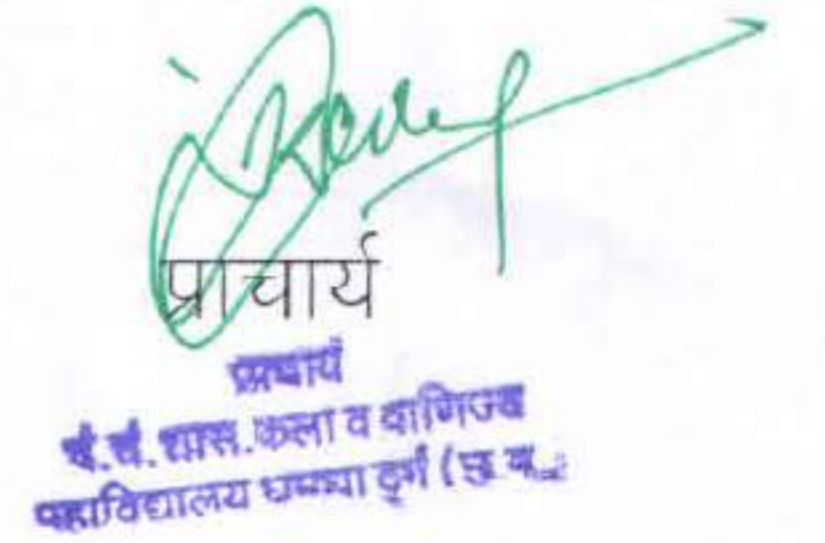 प्राचार्य
प्राचार्य
शास.कला व वाणिज्य
महाविद्यालय धमधा दुर्ग (छ.ग.)